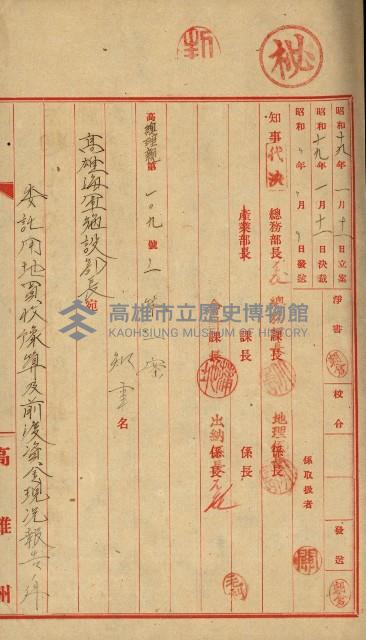 秘
昭和十九年一月十一日立案
昭和十九年一月十二日決裁
昭和 年 月 日發送
淨書
校合
發送
知事
代決
總務部長
產業部長
總務課長
課長
會課長
地理係長
係長
出納係長
係取扱者
高總理親第一〇九號ノ一
案
知事名
高雄海軍施設部長宛
委託用地買收豫算及前渡資金現況報告ノ件
高雄州
高雄市立歷史博物館
KAOHSIUNG MUSEUM OF HISTORY